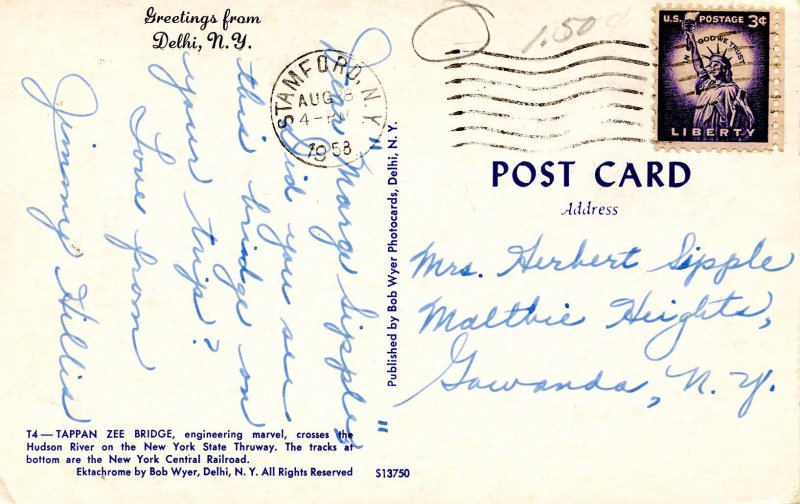 Greetings from
Delhi, N.Y.
"Dear Marge Sipple,"
Did you see
this bridge on
your trip?
Love from
Jimmy Hillis
T4 — TAPPAN ZEE BRIDGE, engineering marvel, crosses the
Hudson River on the New York State Thruway. The tracks at
bottom are the New York Central Railroad.
Ektachrome by Bob Wyer, Delhi, N. Y. All Rights Reserved
S13750
Published by Bob Wyer Photocards, Delhi, N. Y.
STAMFORD, N.Y.
AUG
4-PM
1958
1.50
U.S. POSTAGE 3¢
IN GOD WE TRUST
LIBERTY
POST CARD
Address
Mrs. Herbert Sipple
Maltbie Heights,
Gowanda, N.Y.